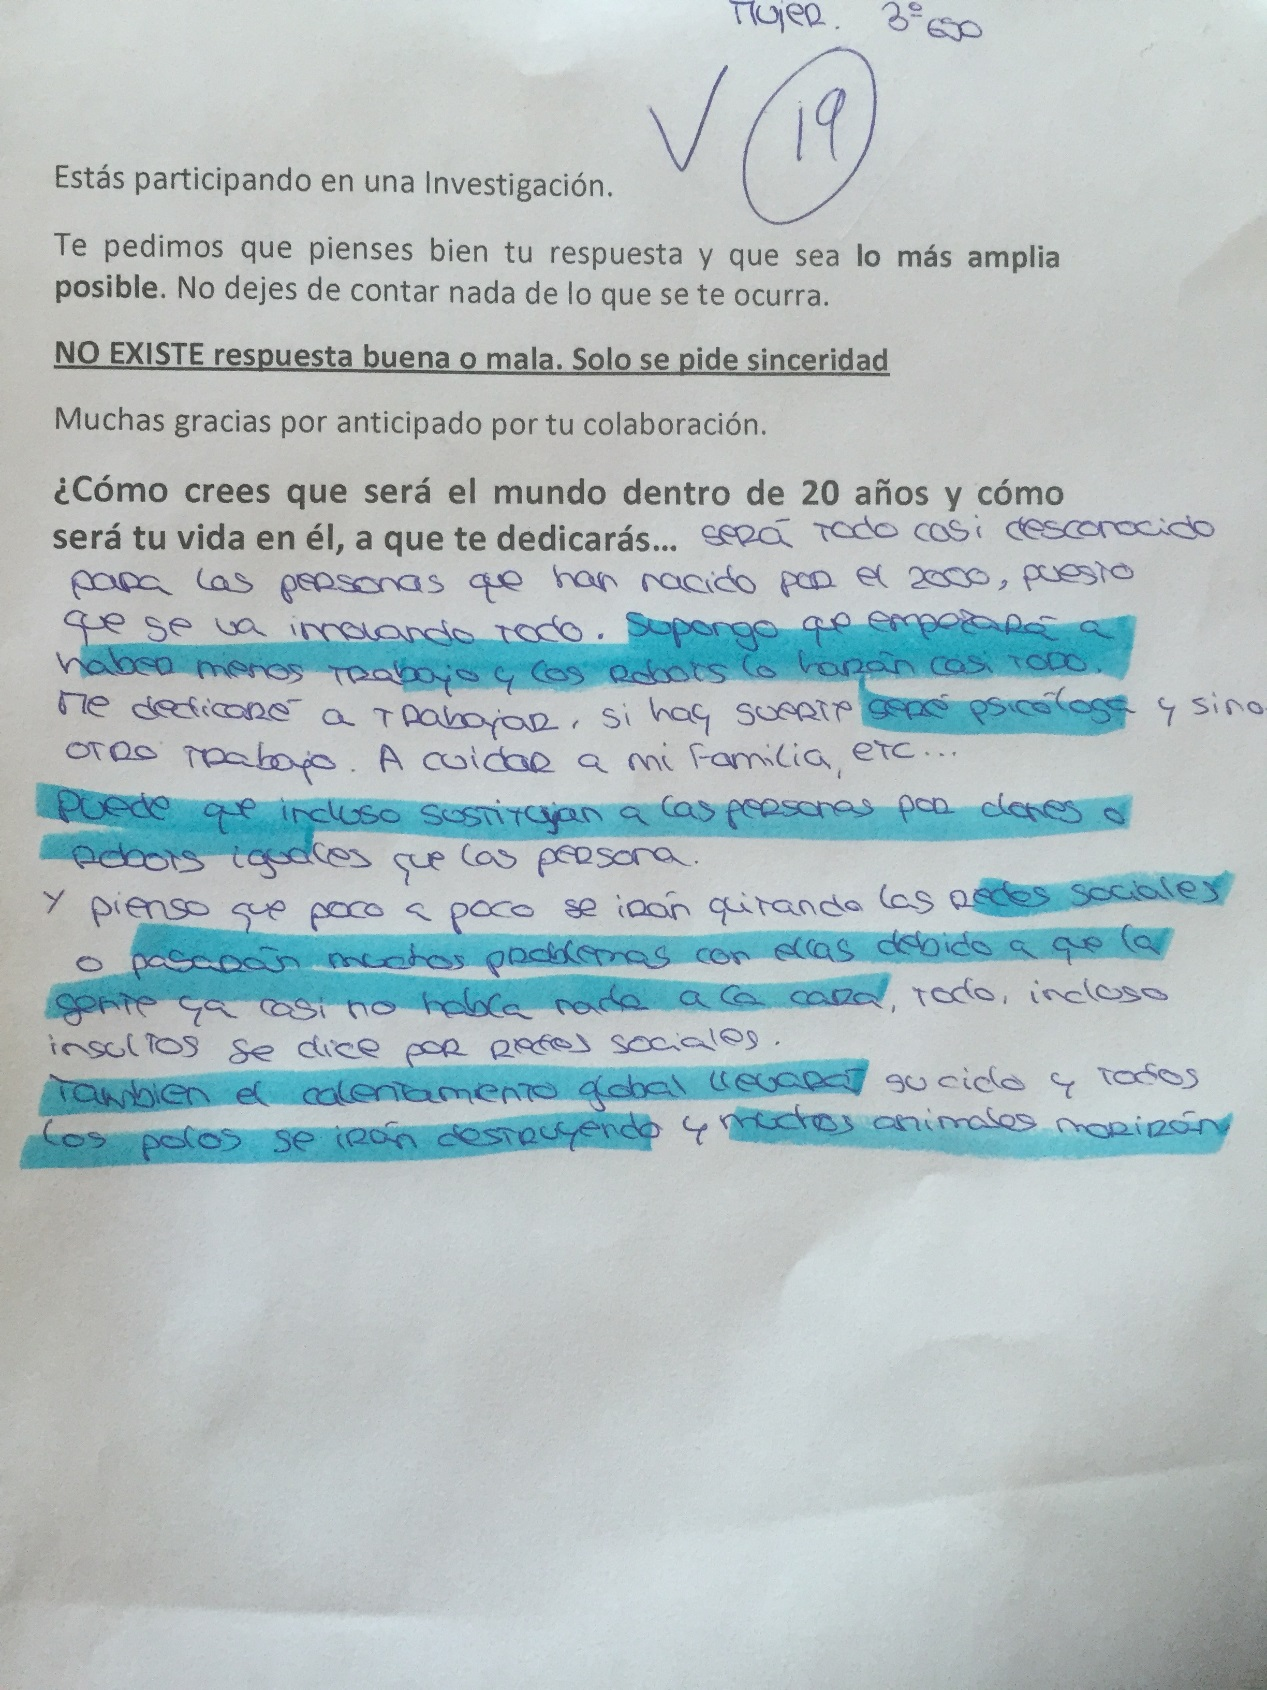 Mujer. 3º ESO
19
Estás participando en una Investigación.
Te pedimos que pienses bien tu respuesta y que sea lo más amplia
posible. No dejes de contar nada de lo que se te ocurra.
NO EXISTE respuesta buena o mala. Solo se pide sinceridad
Muchas gracias por anticipado por tu colaboración.
¿Cómo crees que será el mundo dentro de 20 años y cómo
será tu vida en él, a que te dedicarás... será todo casi desconocido
para las personas que han nacido por el 2000, puesto
que se va innovando todo. Supongo que empezará a
haber menos trabajo y los robots lo harán casi todo.
Me dedicaré a trabajar, si hay suerte seré psicóloga y sino
otro trabajo. A cuidar a mi familia, etc...
Puede que incluso sustituyan a las personas por clones o
robots iguales que las persona.
Y pienso que poco a poco se irán quitando las redes sociales
o pasarán muchos problemas con ellas debido a que la
gente ya casi no habla nada a la cara, todo, incluso
insultos se dice por redes sociales.
Tambien el calentamento global llevará su ciclo y todos
los polos se irán destruyendo y muchos animales morirán